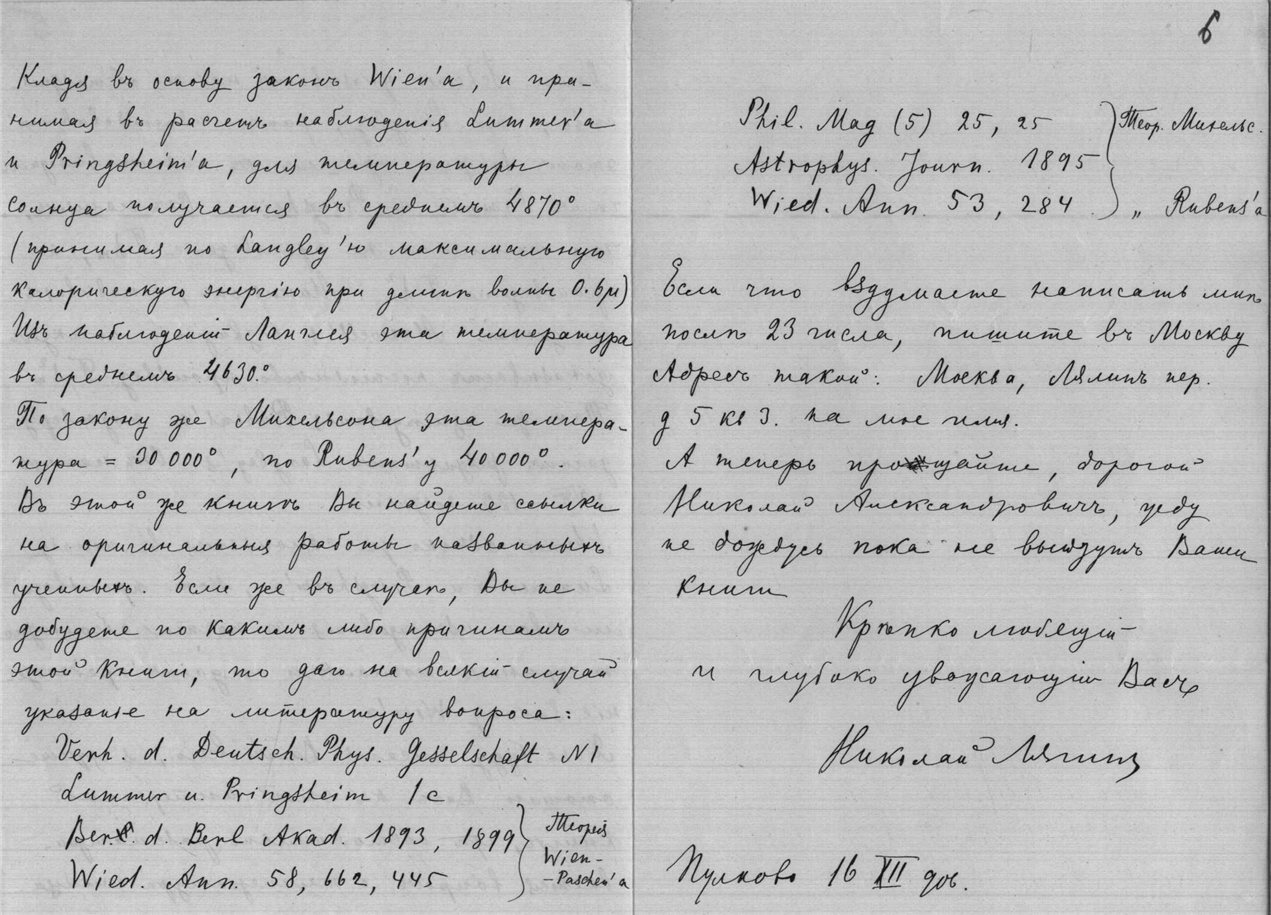 Кладя въ основу законъ Wien'а, и при-
нимая въ расчетъ наблюденія Lummer'а
и Pringsheim'а, для температуры
солнца получается въ среднемъ 4870°
(принимая по Langley'ю максимальную
калорическую энергію при длинѣ волны 0.6μ)
Изъ наблюденій Ланглея эта температура
въ среднемъ 4630°.
По закону же Михельсона эта темпера-
тура = 30 000°, по Rubens'у 40 000°.
Въ этой же книгѣ Вы найдете ссылки
на оригинальныя работы названныхъ
ученыхъ. Если же въ случаѣ, Вы не
добудете по какимъ либо причинамъ
этой книги, то даю на всякій случай
указаніе на литературу вопроса:
Verh. d. Deutsch. Phys. Gesselschaft N1
Lummer u. Pringsheim 1c
Ber. d. Berl Akad. 1893, 1899
Wied. Ann. 58, 662, 445
Теорія
Wien-
-Paschen'а
6
Phil. Mag (5) 25, 25
Astrophys. Journ. 1895
Wied. Ann. 53, 284
Теор. Михельс.
„ Rubens'а
Если что вздумаете написать мнѣ
послѣ 23 числа, пишите въ Москву
Адресъ такой: Москва, Лялинъ пер.
д 5 кв 3. на мое имя.
А теперь прощайте, дорогой
Николай Александровичъ, жду
не дождусь пока не выйдутъ Ваши
книги
Крѣпко любящій
и глубоко уважающій Васъ
Николай
Пулково 16 XII